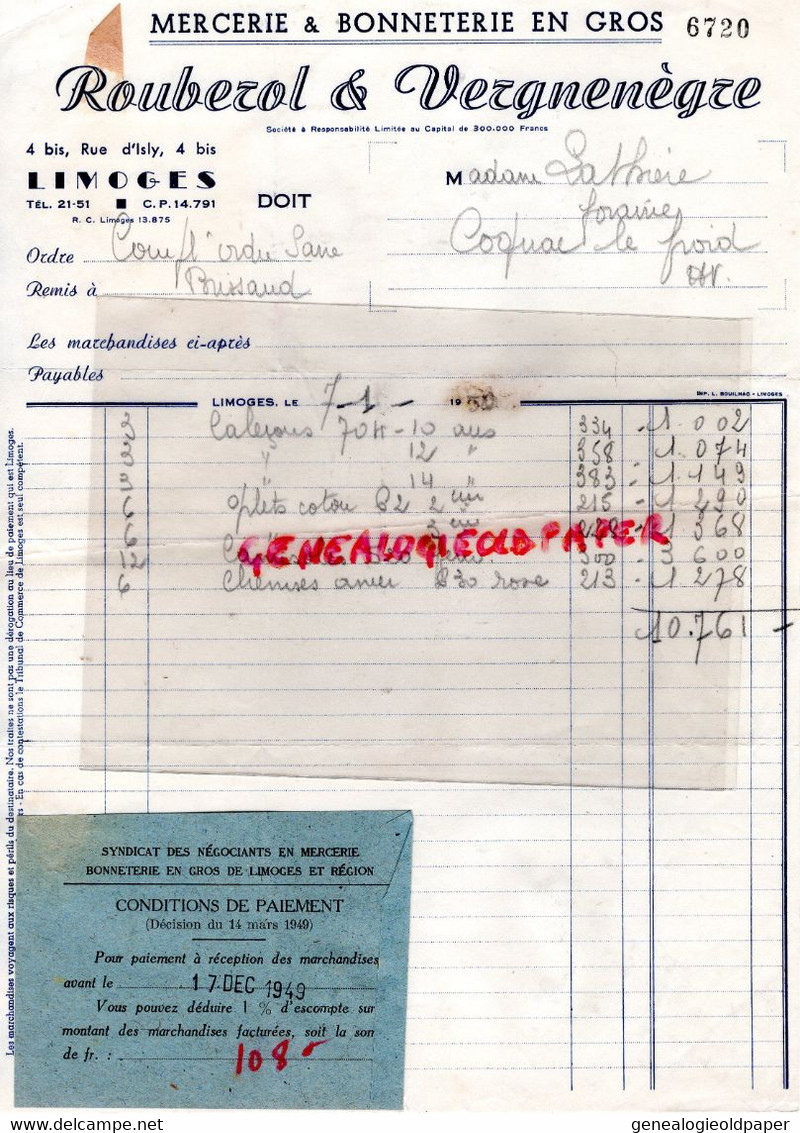 MERCERIE & BONNETERIE EN GROS 6720
Rouberol & Vergnenègre
Société à Responsabilité Limitée au Capital de 300.000 Francs
4 bis, Rue d'Isly, 4 bis
LIMOGES
TÉL. 21-51 ■ C.P. 14.791
R. C. Limoges 13.875
DOIT
Madame
Coqnac le froid
HV.
Ordre
Remis à Brissaud
Les marchandises ci-après
Payables
IMP. L. BOUILHAC - LIMOGES
LIMOGES, LE 7-1- 19
3 Caleçons 70H - 10 ans 334 - 1 002
3 " 12 " 358 - 1 074
3 " 14 " 383 - 1 149
6 coton 215 - 1 290
6 1 368
12 300 - 3 600
6 Chemises B30 rose 213 - 1 278
10.761 -
GENEALOGIEOLDPAPER
Les marchandises voyagent aux risques et périls du destinataire. Nos traites ne sont pas une dérogation au lieu de paiement qui est Limoges.
- En cas de contestations le Tribunal de Commerce de Limoges est seul compétent.
SYNDICAT DES NÉGOCIANTS EN MERCERIE
BONNETERIE EN GROS DE LIMOGES ET RÉGION
CONDITIONS DE PAIEMENT
(Décision du 14 mars 1949)
Pour paiement à réception des marchandises
avant le 17 DEC 1949
Vous pouvez déduire 1 % d'escompte sur
montant des marchandises facturées, soit la son
de fr. : 108
genealogieoldpaper